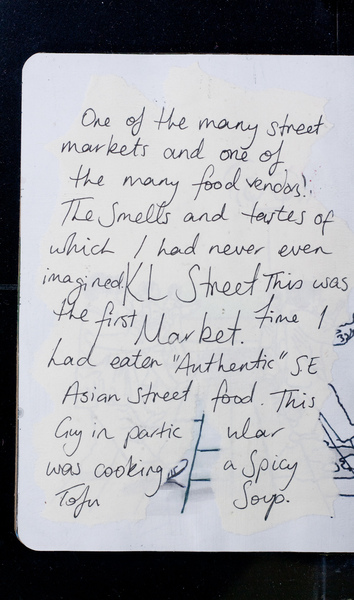 One of the many street
markets and one of
the many food vendors!.
The Smells and tastes of
which I had never even
imagined. KL Street This was
the first Market. time I
had eaten "Authentic" S.E
Asian street food. This
Guy in partic ular
was cooking a Spicy
Tofu Soup.